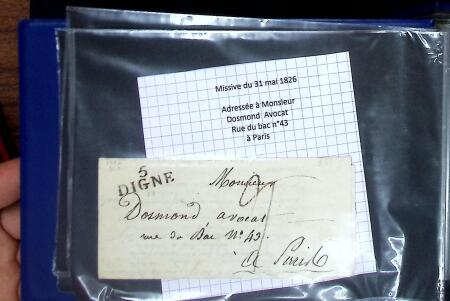 Missive du 31 mai 1826
Adressée à Monsieur
Dosmond Avocat
Rue du bac n°43
à Paris
5
DIGNE
Monsieur
Dosmond, avocat
rue du Bac N° 43.
à Paris